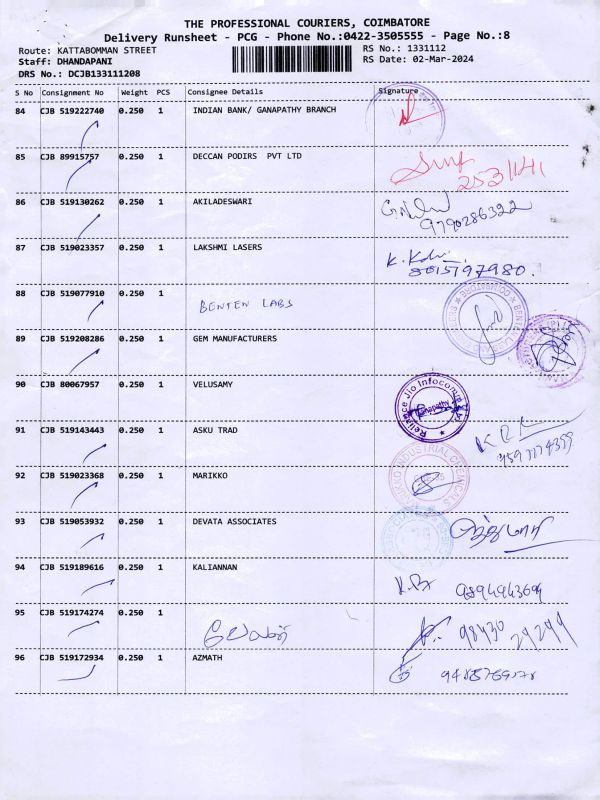 THE PROFESSIONAL COURIERS, COIMBATORE
Delivery Runsheet - PCG - Phone No.:0422-3505555 - Page No.:8
Route: KATTABOMMAN STREET RS No.: 1331112
Staff: DHANDAPANI RS Date: 02-Mar-2024
DRS No.: DCJB133111208
S No Consignment No Weight PCS Consignee Details Signature
84 CJB 519222740 0.250 1 INDIAN BANK/ GANAPATHY BRANCH
85 CJB 89915757 0.250 1 DECCAN PODIRS PVT LTD
2531141
86 CJB 519130262 0.250 1 AKILADESWARI
9790286322
87 CJB 519023357 0.250 1 LAKSHMI LASERS
8015197980.
88 CJB 519077910 0.250 1 BENTEN LABS
89 CJB 519208286 0.250 1 GEM MANUFACTURERS
90 CJB 80067957 0.250 1 VELUSAMY
Reliance Jio Infocomm
Ganapathy
91 CJB 519143443 0.250 1 ASKU TRAD
92 CJB 519023368 0.250 1 MARIKKO
INDUSTRIAL CHEMICALS
93 CJB 519053932 0.250 1 DEVATA ASSOCIATES
94 CJB 519189616 0.250 1 KALIANNAN
95 CJB 519174274 0.250 1
98430 29299
96 CJB 519172934 0.250 1 AZMATH